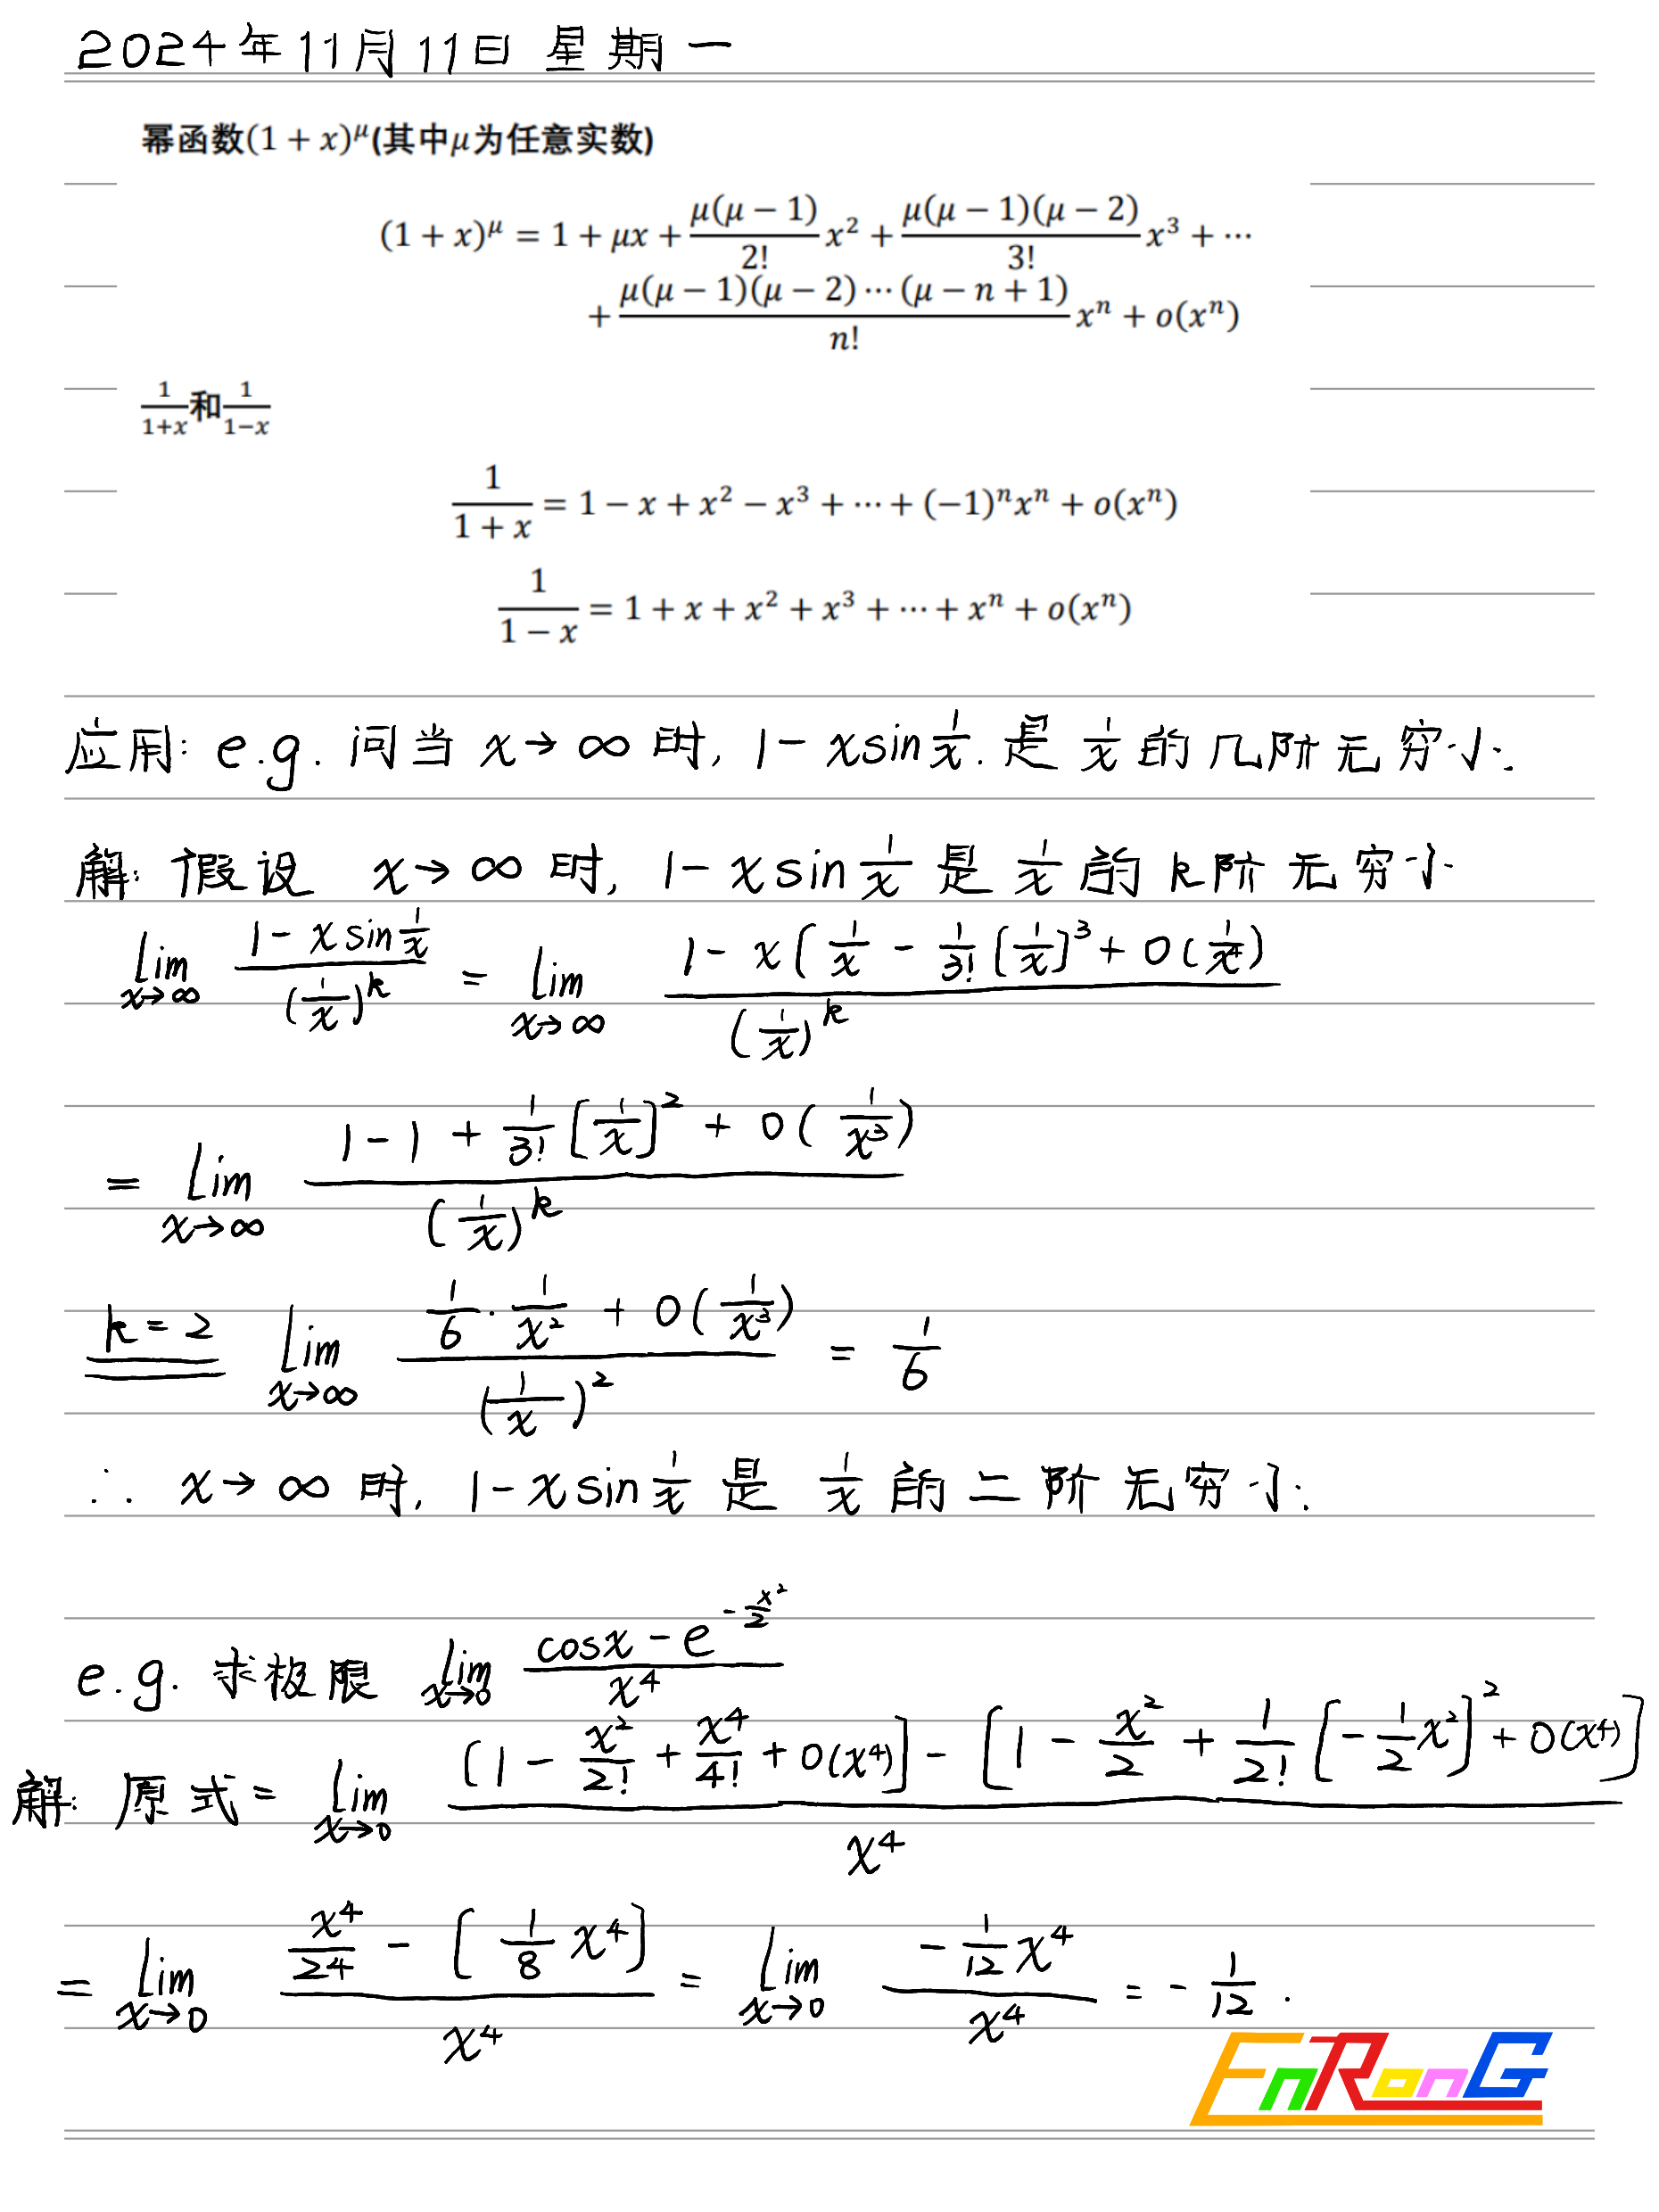 2024年11月11日 星期一
幂函数(1 + x)^μ(其中μ为任意实数)
(1 + x)^μ = 1 + μx + \frac{μ(μ − 1)}{2!}x^2 + \frac{μ(μ − 1)(μ − 2)}{3!}x^3 + ⋯
+ \frac{μ(μ − 1)(μ − 2)⋯(μ − n + 1)}{n!}x^n + o(x^n)
\frac{1}{1+x}和\frac{1}{1−x}
\frac{1}{1 + x} = 1 − x + x^2 − x^3 + ⋯ + (−1)^n x^n + o(x^n)
\frac{1}{1 − x} = 1 + x + x^2 + x^3 + ⋯ + x^n + o(x^n)
应用: e.g. 问当 x→∞ 时, 1 − x sin\frac{1}{x}. 是 \frac{1}{x} 的几阶无穷小.
解: 假设 x→∞ 时, 1 − x sin\frac{1}{x} 是 \frac{1}{x} 的 k阶无穷小
\lim_{x→∞} \frac{1 − x sin\frac{1}{x}}{(\frac{1}{x})^k} = \lim_{x→∞} \frac{1 − x[\frac{1}{x} − \frac{1}{3!}[\frac{1}{x}]^3 + o(\frac{1}{x^4})}{(\frac{1}{x})^k}
= \lim_{x→∞} \frac{1 − 1 + \frac{1}{3!}[\frac{1}{x}]^2 + o(\frac{1}{x^3})}{(\frac{1}{x})^k}
k = 2 \lim_{x→∞} \frac{\frac{1}{6}·\frac{1}{x^2} + o(\frac{1}{x^3})}{(\frac{1}{x})^2} = \frac{1}{6}
∴ x→∞ 时, 1 − x sin\frac{1}{x} 是 \frac{1}{x} 的二阶无穷小.
e.g. 求极限 \lim_{x→0} \frac{cosx − e^{−\frac{x^2}{2}}}{x^4}
解: 原式 = \lim_{x→0} \frac{[1 − \frac{x^2}{2!} + \frac{x^4}{4!} + o(x^4)] − [1 − \frac{x^2}{2} + \frac{1}{2!}[−\frac{1}{2}x^2]^2 + o(x^4)]}{x^4}
= \lim_{x→0} \frac{\frac{x^4}{24} − [\frac{1}{8}x^4]}{x^4} = \lim_{x→0} \frac{−\frac{1}{12}x^4}{x^4} = −\frac{1}{12}.
EnRonG